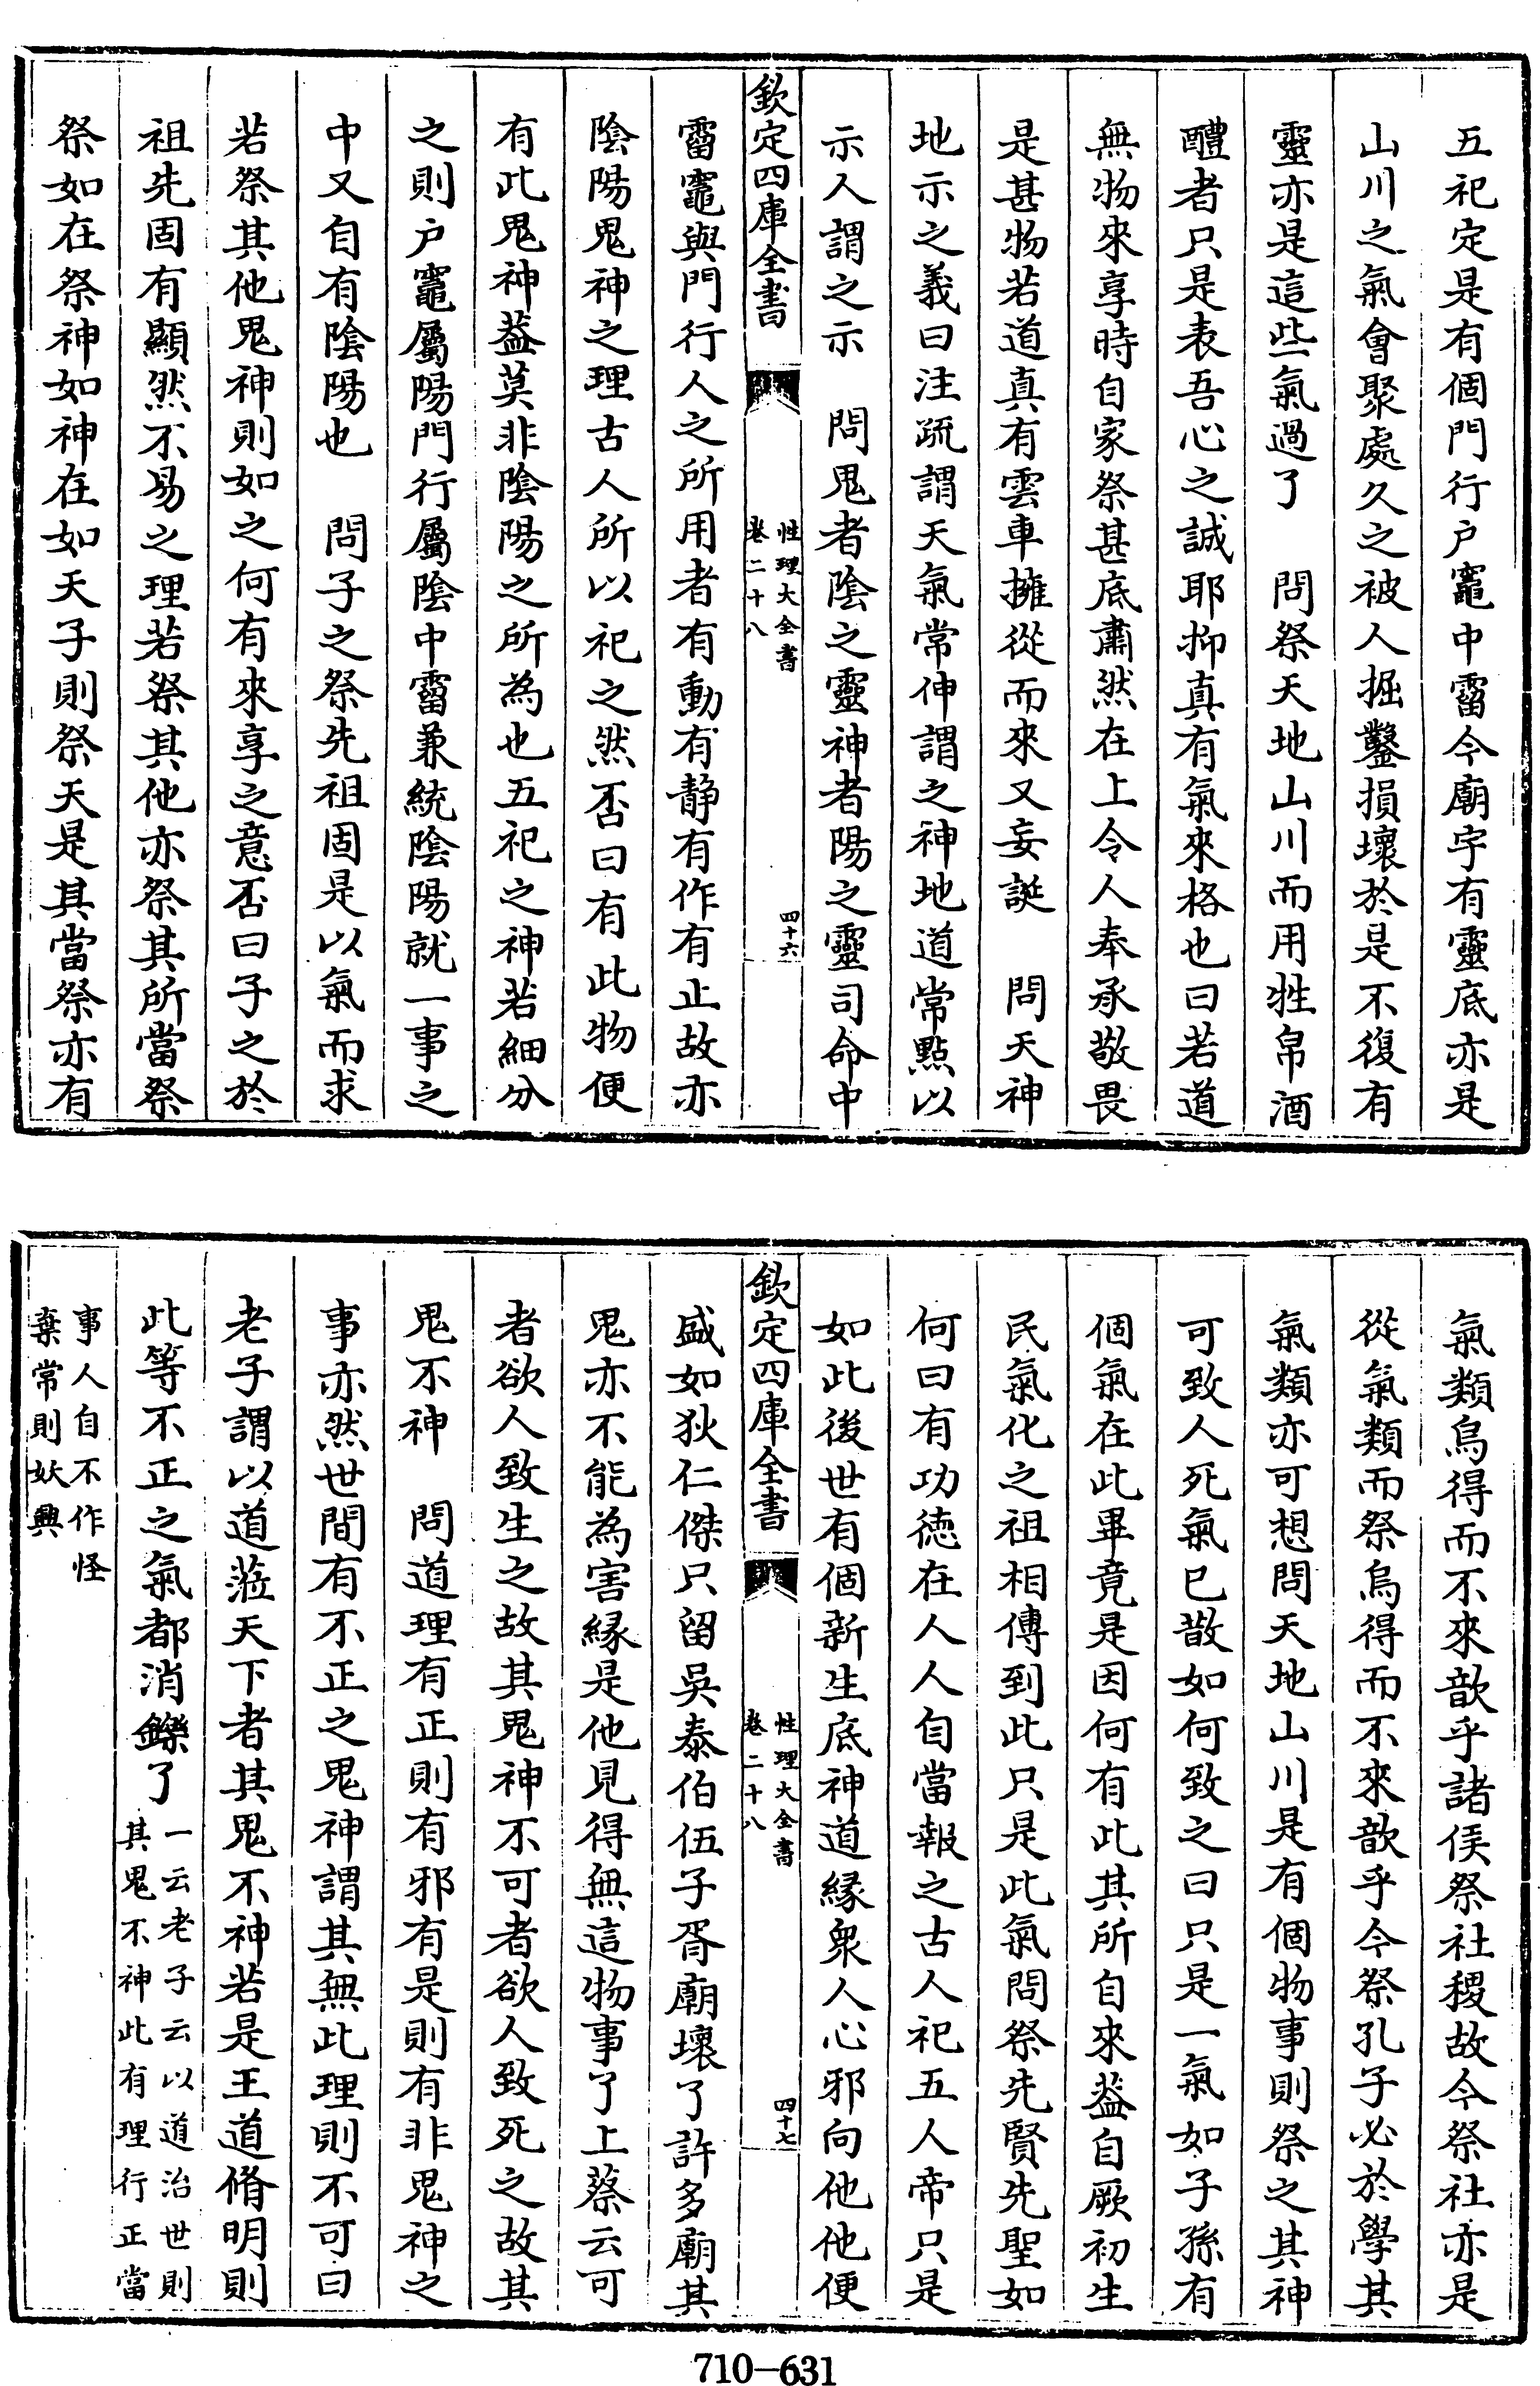 五祀定是有個門行户竈中霤今廟宇有靈底亦是
山川之氣會聚處久之被人掘鑿損壞於是不復有
靈亦是這些氣過了　問祭天地山川而用牲帛酒
醴者只是表吾心之誠耶抑真有氣來格也曰若道
無物來享時自家祭甚底肅然在上令人奉承敬畏
是甚物若道真有雲車擁從而來又妄誕　問天神
地示之義曰注疏謂天氣常伸謂之神地道常黙以
示人謂之示　問鬼者陰之靈神者陽之靈司命中
欽定四庫全書
性理大全書
卷二十八
四十六
霤竈與門行人之所用者有動有静有作有止故亦
陰陽鬼神之理古人所以祀之然否曰有此物便
有此鬼神葢莫非陰陽之所為也五祀之神若細分
之則户竈屬陽門行屬陰中霤兼統陰陽就一事之
中又自有陰陽也　問子之祭先祖固是以氣而求
若祭其他鬼神則如之何有來享之意否曰子之於
祖先固有顯然不易之理若祭其他亦祭其所當祭
祭如在祭神如神在如天子則祭天是其當祭亦有
氣類烏得而不來歆乎諸侯祭社稷故今祭社亦是
從氣類而祭烏得而不來歆乎今祭孔子必於學其
氣類亦可想問天地山川是有個物事則祭之其神
可致人死氣已散如何致之曰只是一氣如子孫有
個氣在此畢竟是因何有此其所自來葢自厥初生
民氣化之祖相傳到此只是此氣問祭先賢先聖如
何曰有功德在人人自當報之古人祀五人帝只是
如此後世有個新生底神道緣衆人心邪向他他便
欽定四庫全書
性理大全書
卷二十八
四十七
盛如狄仁傑只留吳泰伯伍子胥廟壞了許多廟其
鬼亦不能為害緣是他見得無這物事了上蔡云可
者欲人致生之故其鬼神不可者欲人致死之故其
鬼不神　問道理有正則有邪有是則有非鬼神之
事亦然世間有不正之鬼神謂其無此理則不可曰
老子謂以道蒞天下者其鬼不神若是王道脩明則
此等不正之氣都消鑠了
一云老子云以道治世則
其鬼不神此有理行正當
事人自不作怪
棄常則妖興
710-631